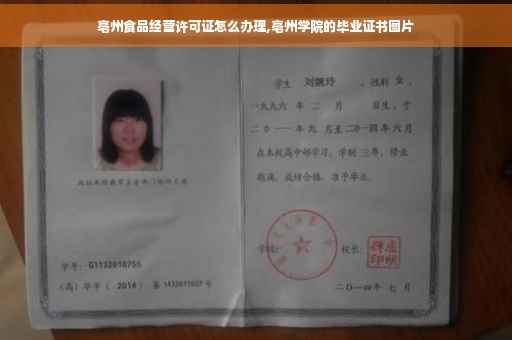 亳州食品经营许可证怎么办理,亳州学院的毕业证书图片
学生 刘婉玲 ，性别 女 ，
一九九六 年 二 月 日生，于
二〇一一 年 九 月至 二〇一四 年 六 月
在本校高中部学习，学制 三 年，修业
期满，成绩合格，准予毕业。
学号： G1132010755
（高）毕字（ 2014 ）第 1432011027 号
学校：
校长：
二〇一四年 七 月